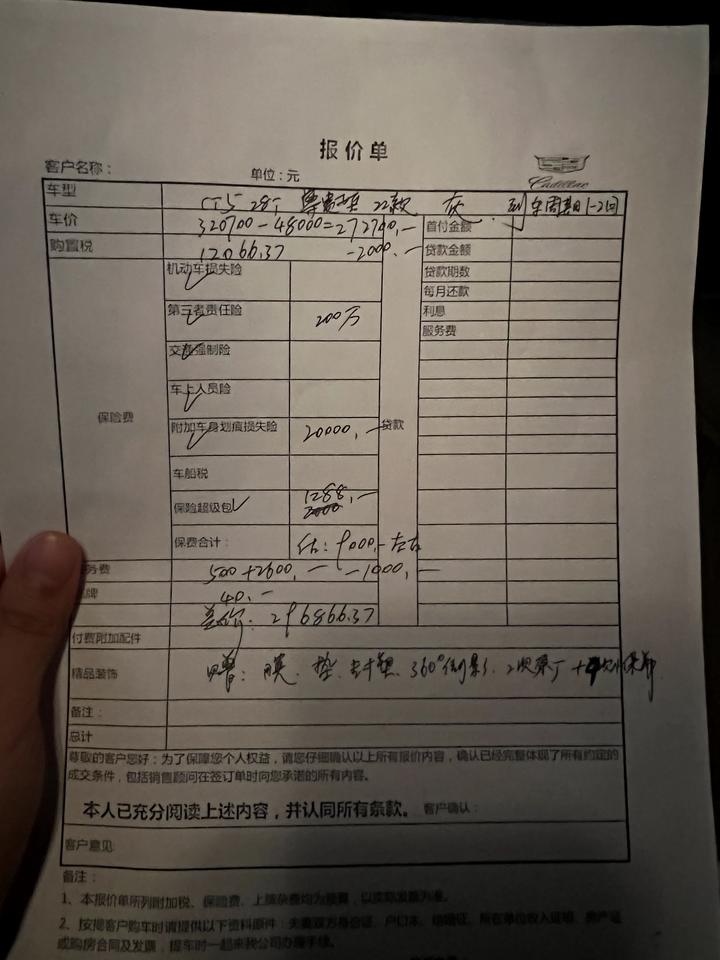 报价单
客户名称：
单位：元
Cadillac
车型 CT5 28T 尊贵型 22款 灰 到车周期1-2周
车价 320700-48000=272700,- 首付金额
购置税 12066.37 -2000,- 贷款金额
机动车损失险 贷款期数
每月还款
第三者责任险 200万 利息
服务费
交通强制险
车上人员险
保险费
附加车身划痕损失险 20000,- 贷款
车船税
保险超级包 1288,-
2000
保费合计： 估：9000,-左右
务费 500+2600,- -1000,-
牌 40,-
总价：296866.37
付费附加配件
精品装饰 赠：膜、垫、封塑、360°倒影、2次
备注：
总计
尊敬的客户您好：为了保障您个人权益，请您仔细确认以上所有报价内容，确认已经完整体现了所有约定的
成交条件，包括销售顾问在签订单时向您承诺的所有内容。
本人已充分阅读上述内容，并认同所有条款。 客户确认：
客户意见
备注：
1、本报价单所列附加税、保险费、上牌杂费均为预算，以实际发票为准。
2、按揭客户购车时请提供以下资料原件：夫妻双方身份证、户口本、结婚证、所在单位收入证明、房产证
或购房合同及发票，提车时一起来我公司办理手续。